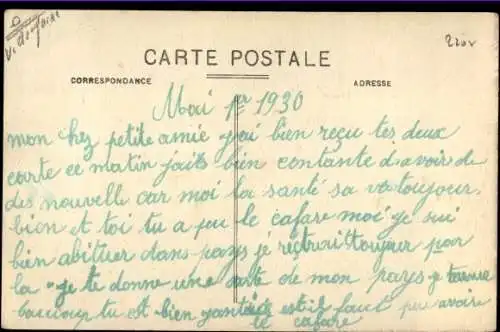 CARTE POSTALE
CORRESPONDANCE
ADRESSE
Mai 1er 1930
mon chez petite amie j'ai bien reçu tes deux
carte ce matin jaits bien contante d'avoirs de
des nouvelle car moi la santé sa va toujour
bien et toi tu a peu le cafare moi je sui
bien abituer dans pays je toujour par
la je te donne une carte de mon pays je
beaucoup tu est bien il faut peu avoire
le cafare